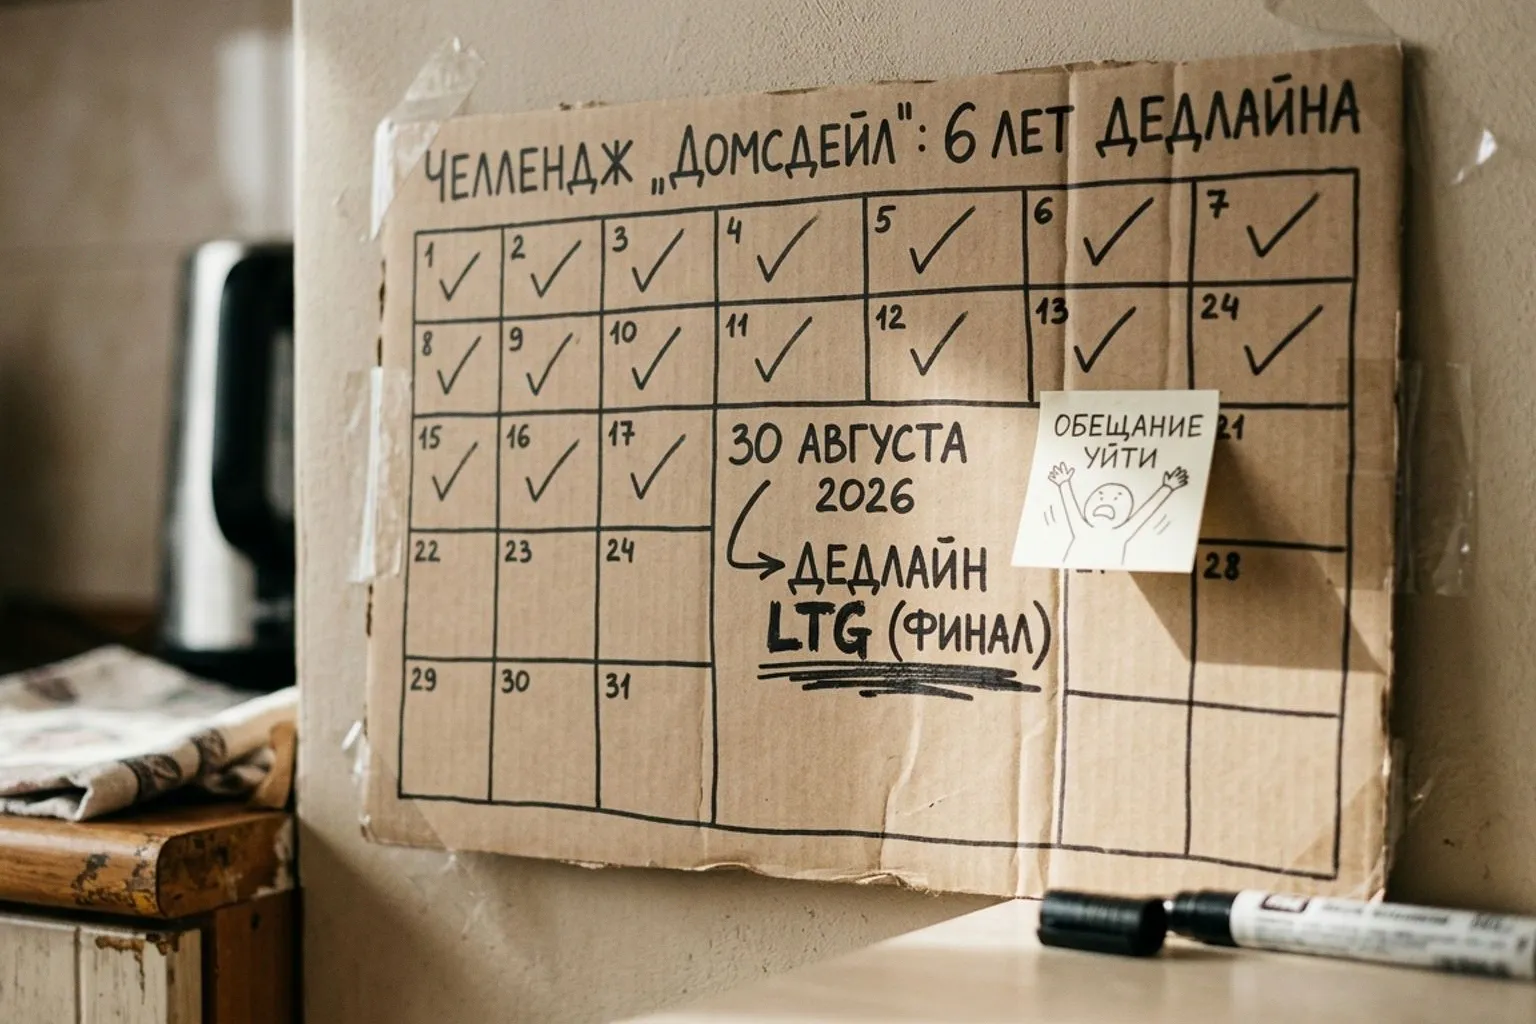 ЧЕЛЛЕНДЖ „ДОМСДЕЙЛ": 6 ЛЕТ ДЕДЛАЙНА
1 2 3 4 5 6 7
8 9 10 11 12 13 24
15 16 17
30 АВГУСТА
2026
ДЕДЛАЙН
LTG (ФИНАЛ)
ОБЕЩАНИЕ
УЙТИ
21
22 23 24
28
29 30 31